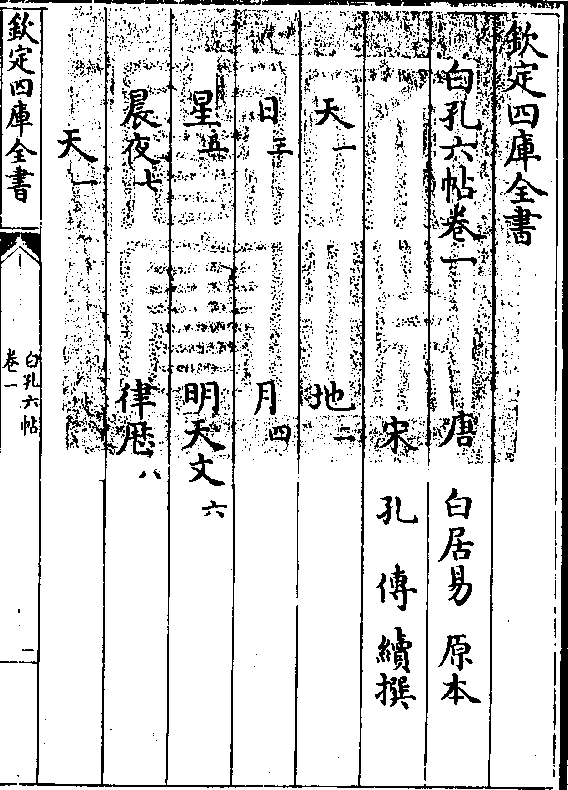 欽定四庫全書
白孔六帖卷一
唐 白居易 原本
宋 孔傳 續撰
天一 地二
日三 月四
星五 明天文六
晨夜七 律厯八
天一
欽定四庫全書
白孔六帖
卷一
一